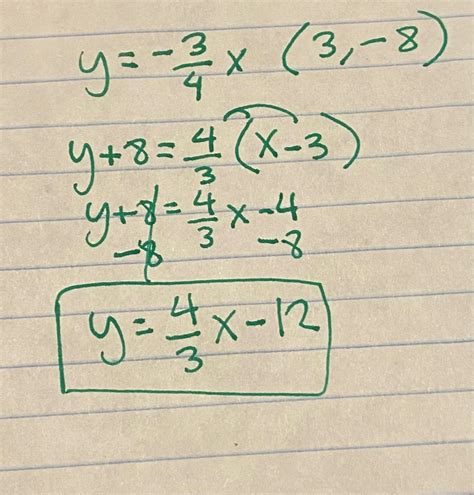 y = -3/4 x (3, -8)
y + 8 = 4/3 (x - 3)
y + 8 = 4/3 x - 4
-8 -8
y = 4/3 x - 12